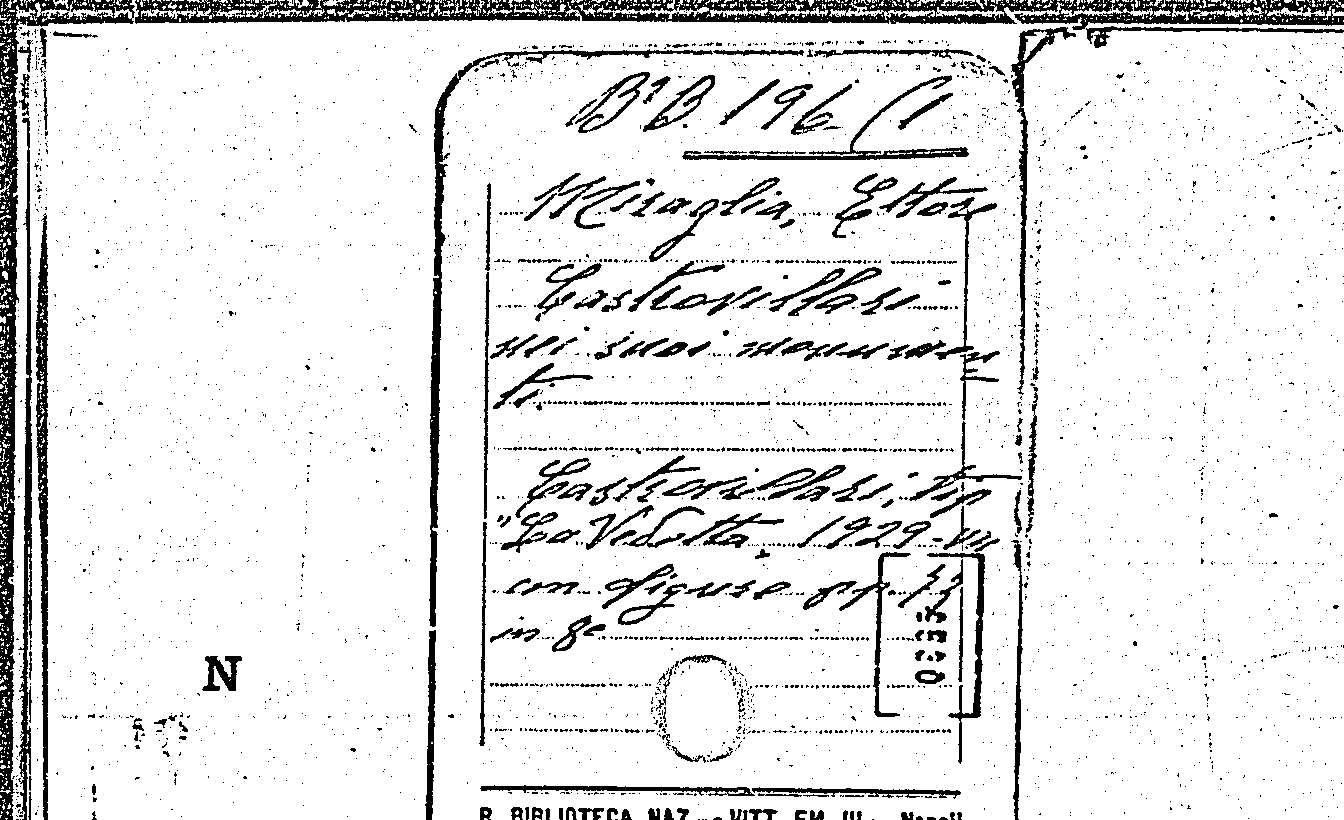 BªB. 196 (1
Miraglia, Ettore
Castrovillari
nei suoi monumen
ti.
Castrovillari, tip
"La Vedetta, 1929-VII
con figure pp.
in 8º
N
R. BIBLIOTECA NAZ. - VITT. EM. III - Napoli